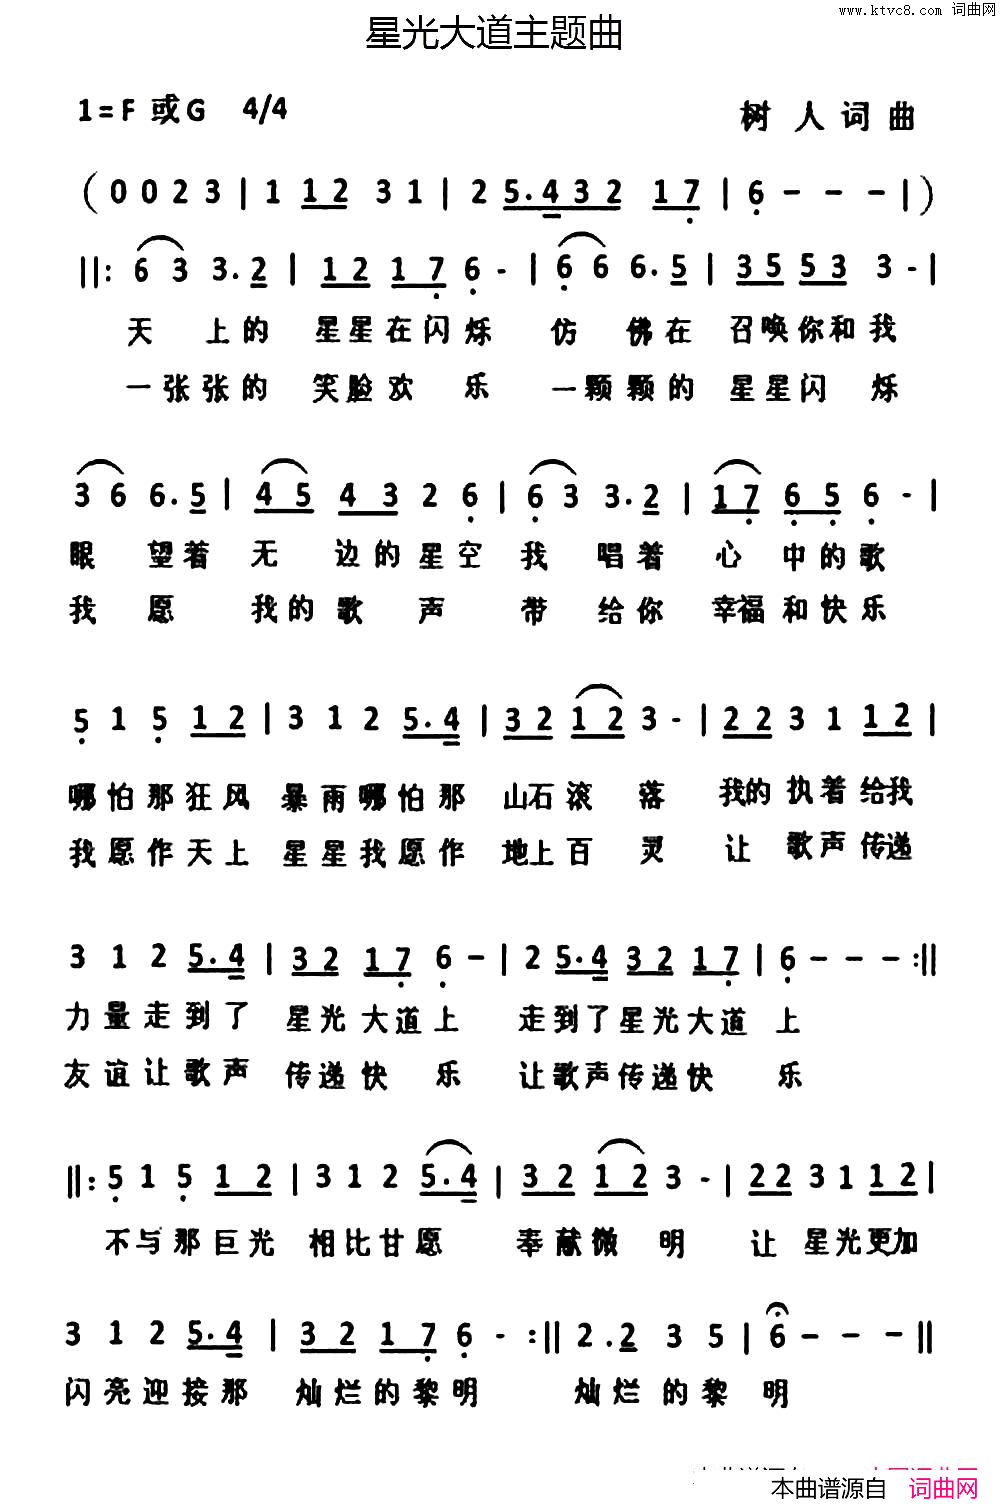 www.ktvc8.com 词曲网
星光大道主题曲
1=F 或G 4/4
树人词曲
(0 0 2 3 | 1 1 2 3 1 | 2 5. 4 3 2 1 7 | 6 - - - |)
||: 6 3 3. 2 | 1 2 1 7 6 - | 6 6 6. 5 | 3 5 5 3 3 - |
天上的 星星在闪烁 仿佛在 召唤你和我
一张张的 笑脸欢乐 一颗颗的 星星闪烁
3 6 6. 5 | 4 5 4 3 2 6 | 6 3 3. 2 | 1 7 6 5 6 - |
眼望着 无边的星空 我唱着 心中的歌
我愿 我的歌声 带给你 幸福和快乐
5 1 5 1 2 | 3 1 2 5. 4 | 3 2 1 2 3 - | 2 2 3 1 1 2 |
哪怕那狂风 暴雨哪怕那 山石滚落 我的执着给我
我愿作天上 星星我愿作 地上百灵 让歌声传递
3 1 2 5. 4 | 3 2 1 7 6 - | 2 5. 4 3 2 1 7 | 6 - - - :||
力量走到了 星光大道上 走到了星光大道上
友谊让歌声 传递快乐 让歌声传递快乐
||: 5 1 5 1 2 | 3 1 2 5. 4 | 3 2 1 2 3 - | 2 2 3 1 1 2 |
不与那巨光 相比甘愿 奉献微明 让星光更加
3 1 2 5. 4 | 3 2 1 7 6 - :|| 2. 2 3 5 | 6 - - - ||
闪亮迎接那 灿烂的黎明 灿烂的黎明
本曲谱源自 词曲网